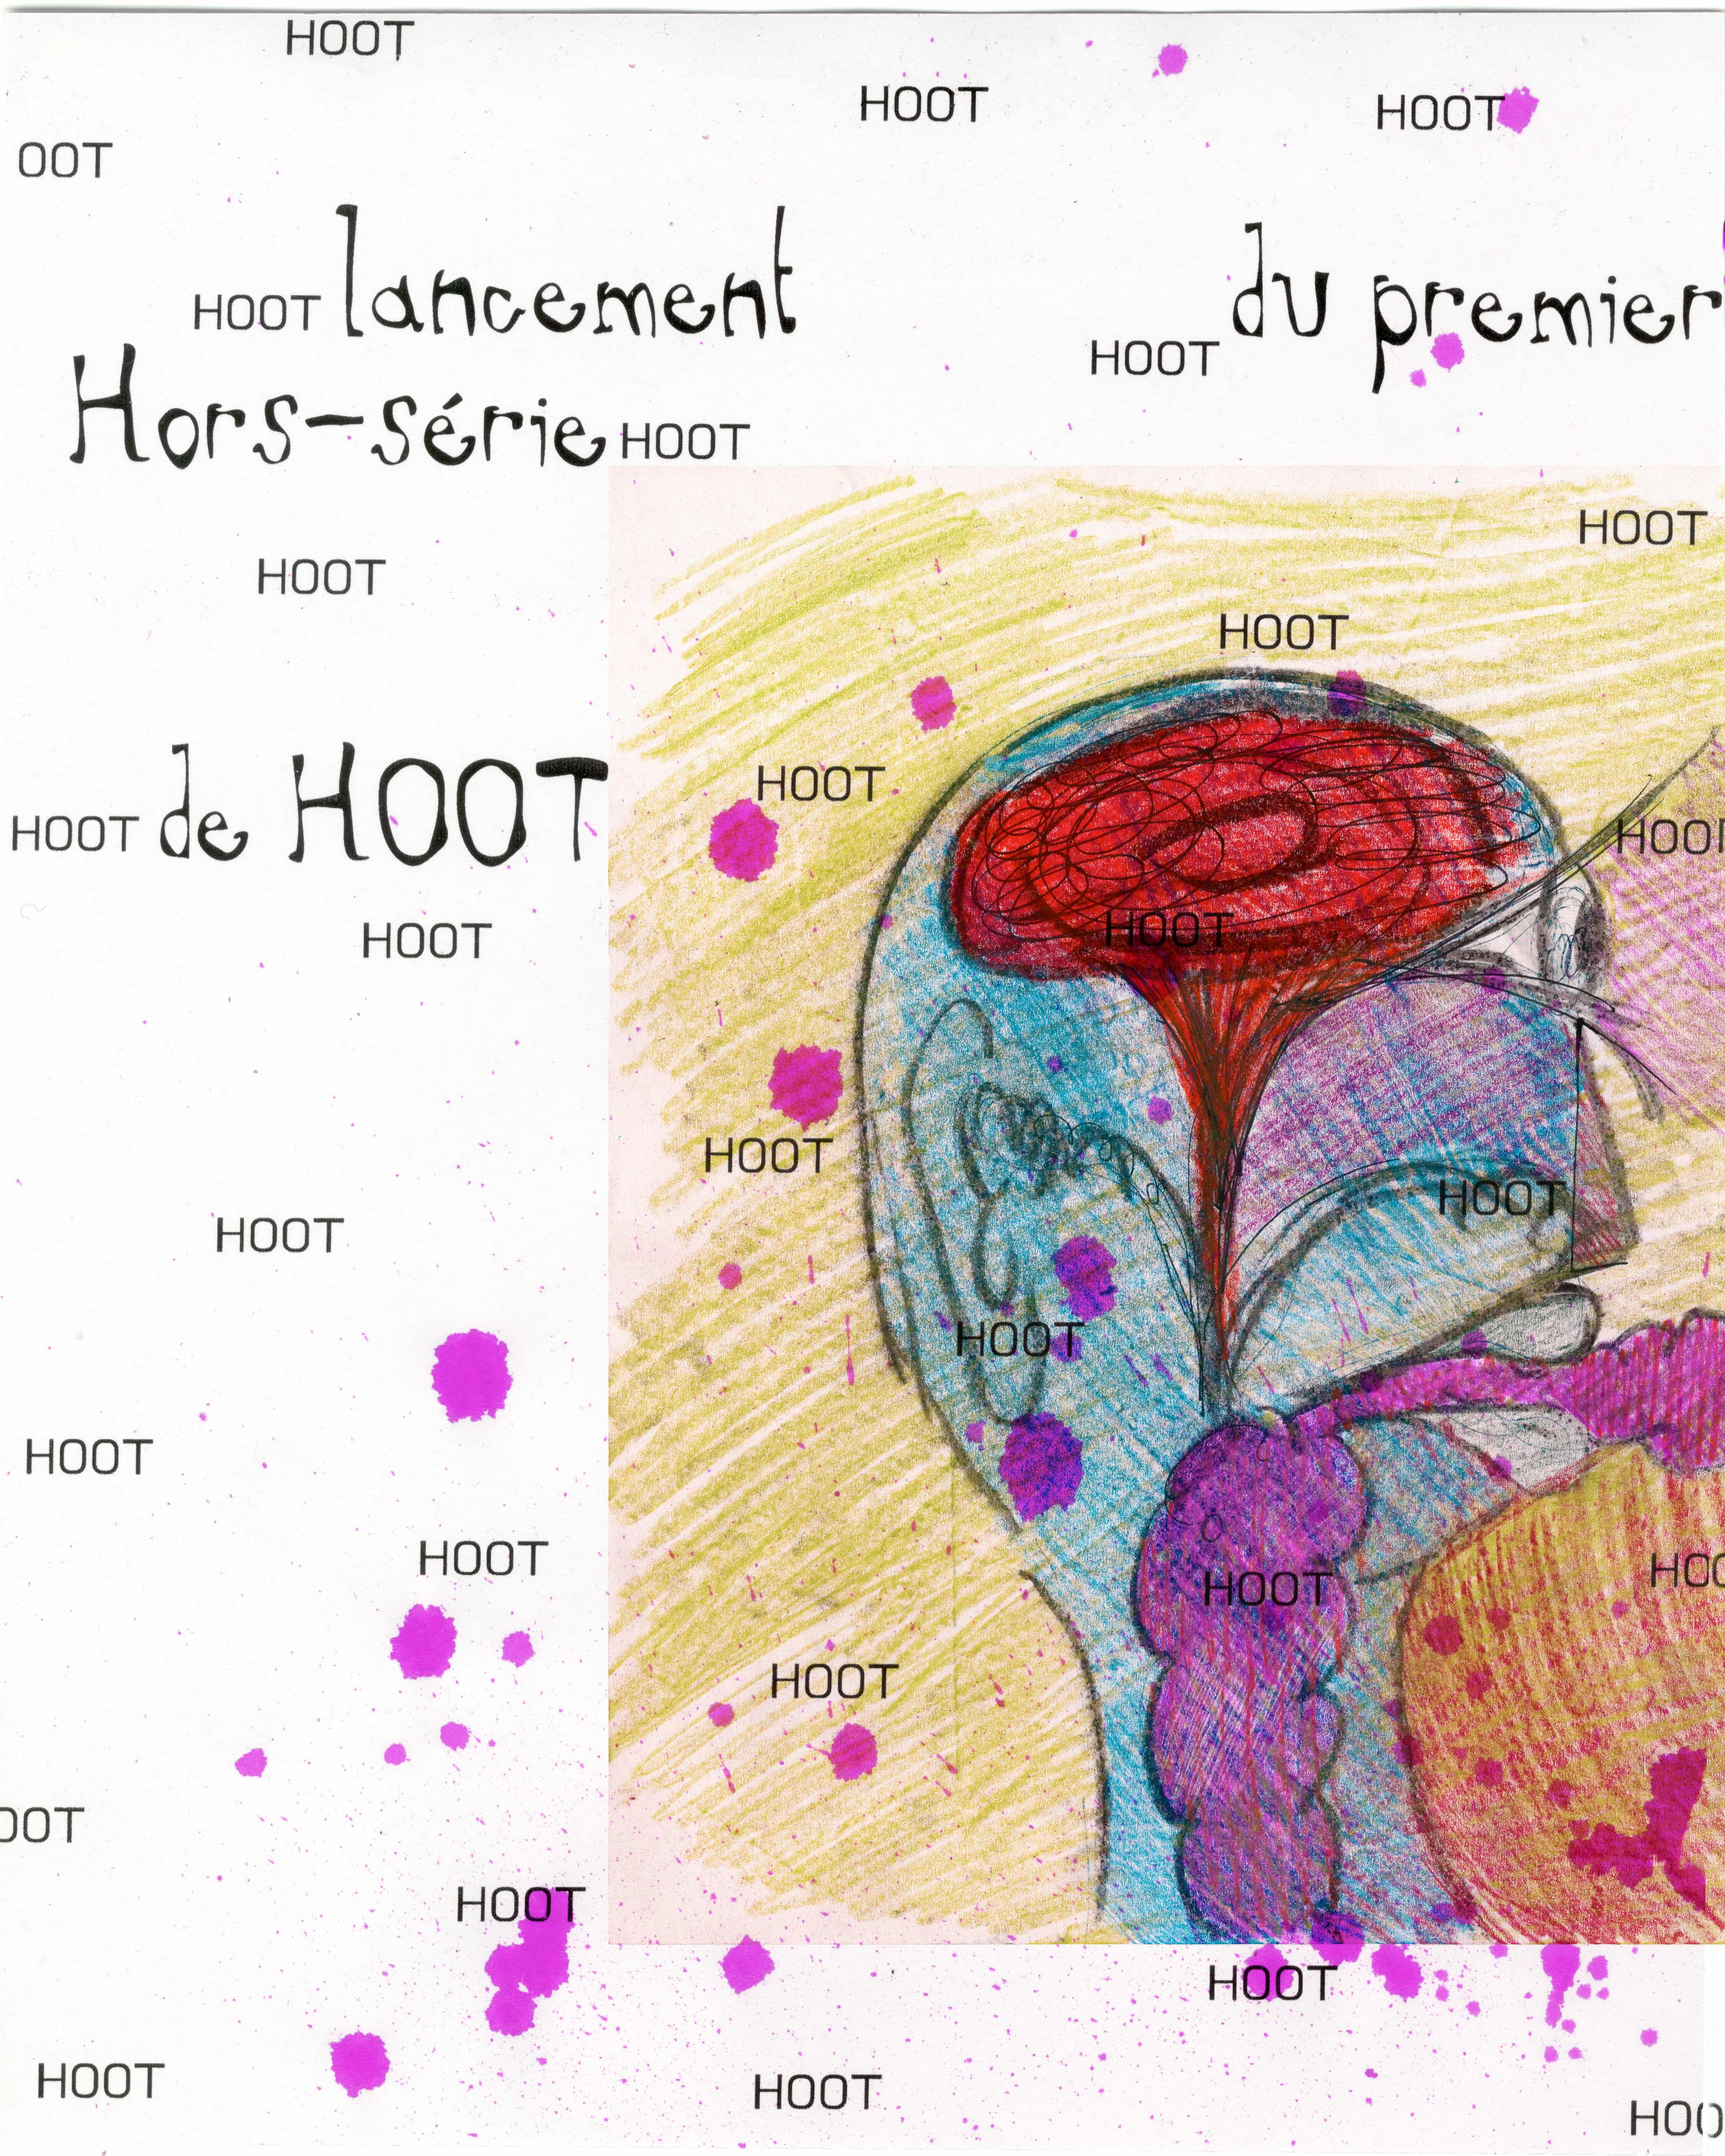 HOOT
HOOT
HOOT
OOT
HOOT lancement
HOOT du premier
Hors-série HOOT
HOOT
HOOT
HOOT
HOOT
HOOT de HOOT
HOO
HOOT
HOOT
HOOT
HOOT
HOOT
HOOT
HOOT
HOOT
HOOT
HOO
HOOT
OOT
HOOT
HOOT
HOOT
HOOT
HOO